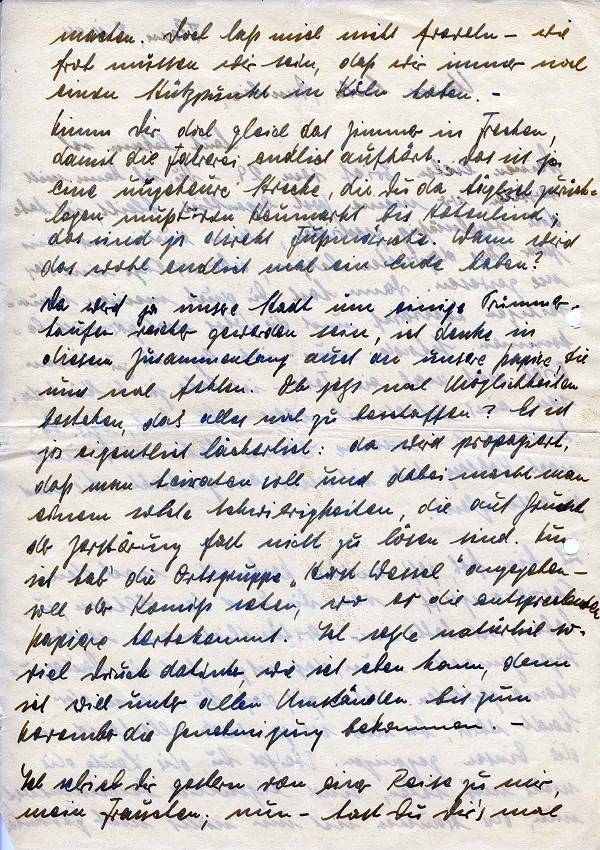 machen. Doch laß mich nicht freveln – wie
froh müssen wir sein, daß wir immer noch
einen Stützpunkt in Köln haben. –
Nimm Dir doch gleich das Zimmer in Frechen,
damit die Fahrerei endlich aufhört. Das ist ja
eine ungeheure Strecke, die Du da täglich zurück-
legen mußt von Neumarkt bis
das sind ja direkt Fußmärsche. Wann wird
das wohl endlich mal ein Ende haben?
Da wird ja unsere Stadt um einige Trümmer-
haufen reicher geworden sein, ich denke in
diesem Zusammenhang auch an unsere Papiere, die
uns noch fehlen. Ob jetzt noch Möglichkeiten
bestehen, das alles noch zu beschaffen? Es ist
ja eigentlich lächerlich: da wird propagiert,
daß man heiraten soll und dabei macht man
einem solche Schwierigkeiten, die auf Grund
der Zerstörung fast nicht zu lösen sind. Nun
ich hab' die Ortsgruppe „Horst Wessel" angegeben –
soll der Kommiß sehen, wo er die entsprechenden
Papiere herbekommt. Ich setzte natürlich so-
viel Druck dahinter, wie ich eben kann, denn
ich will unter allen Umständen bis zum
November die Genehmigung bekommen. –
Ich schrieb Dir gestern von einer Reise zu mir,
mein Frauchen; nun – hast Du Dir's mal